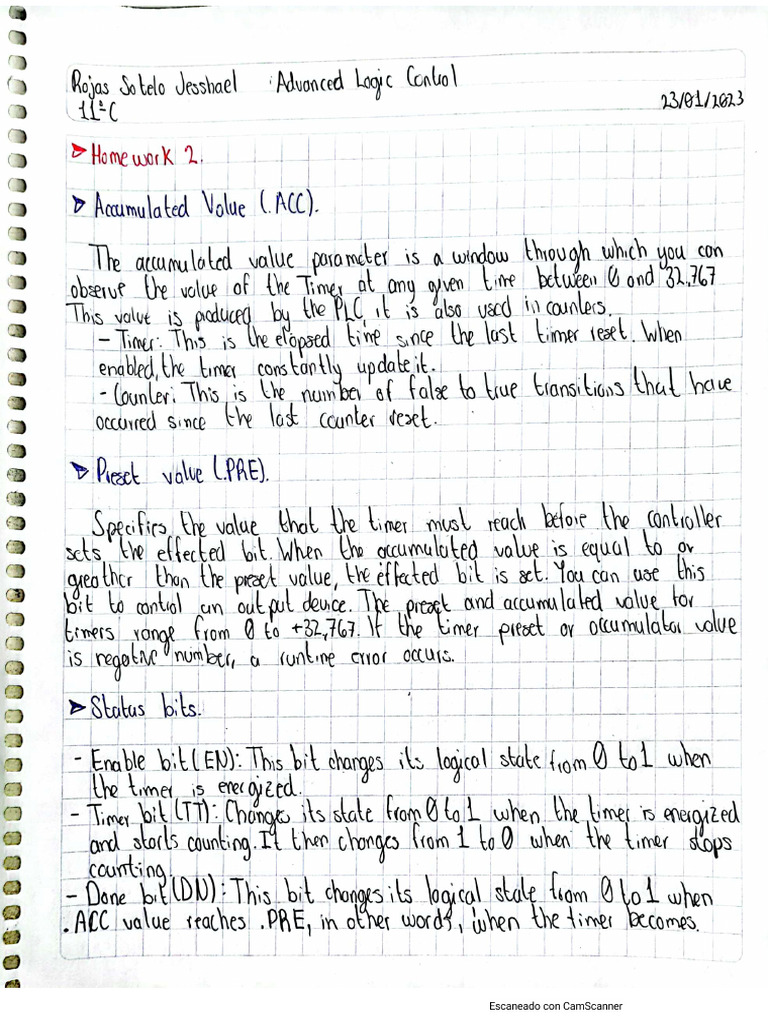 Rojas Sotelo Jesshael :Advanced Logic Control
11°C
23/01/2023
➤ Homework 2.
➤ Accumulated Value (.ACC).
The accumulated value parameter is a window through which you can
observe the value of the Timer at any given time between 0 and 32,767
This value is produced by the PLC, it is also used in counters.
- Timer: This is the elapsed time since the last timer reset. When
enabled, the timer constantly update it.
- Counter: This is the number of false to true transitions that have
occurred since the last counter reset.
➤ Preset value (.PRE).
Specifies the value that the timer must reach before the controller
sets the effected bit. When the accumulated value is equal to or
greather than the preset value, the effected bit is set. You can use this
bit to control an output device. The preset and accumulated value for
timers range from 0 to +32,767. If the timer preset or accumulator value
is negative number, a runtine error occurs.
➤ Status bits.
- Enable bit (EN): This bit changes its logical state from 0 to 1 when
the timer is energized.
- Timer bit (TT): Changes its state from 0 to 1 when the timer is energized
and starts counting. It then changes from 1 to 0 when the timer stops
counting.
- Done bit (DN): This bit changes its logical state from 0 to 1 when
.ACC value reaches .PRE, in other words, when the timer becomes.
Escaneado con CamScanner